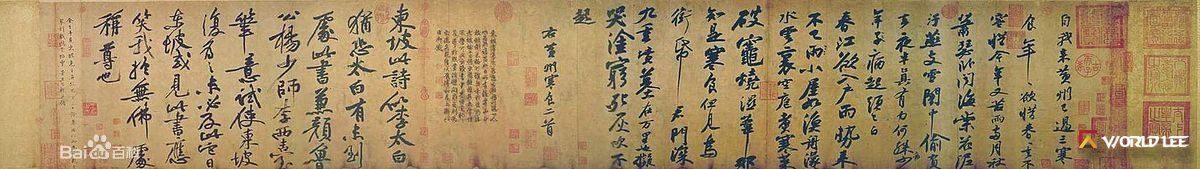 自我來黃州已過三寒
食年〻欲惜春春去不
容惜今年又苦雨兩月秋
蕭瑟臥聞海棠花泥
汙燕支雪闇中偷負
去夜半真有力何殊病少
年子病起頭已白
春江欲入戶雨勢來
不已雨小屋如漁舟濛〻
水雲裏空庖煮寒菜
破竈燒濕葦那
知是寒食但見烏
銜帋 君門深
九重墳墓在万里也擬
哭塗窮死灰吹不
起
右黃州寒食二首
東坡此詩似李太白
猶恐太白有未到
處此書兼顏魯
公楊少師李西臺
筆意試使東坡
復為之未必及此它日
東坡或見此書應
笑我於無佛處
稱尊也
Bai百科
WORLD LEE